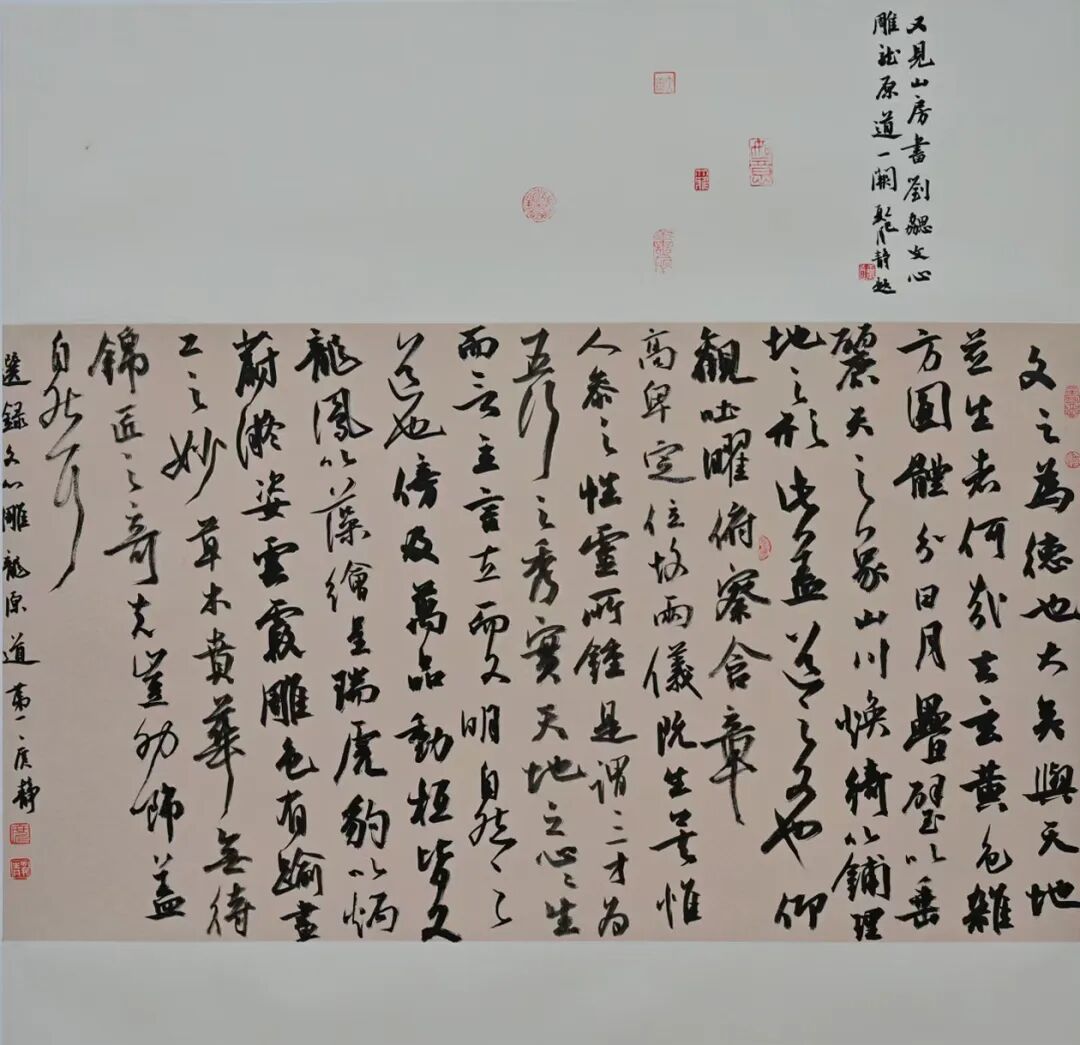 又見山房書劉勰文心
雕龍原道一闋 靜題
文之為德也大矣與天地
並生者何哉夫玄黃色雜
方圓體分日月疊璧以垂
麗天之象山川煥綺以鋪理
地之形此蓋道之文也仰
觀吐曜俯察含章
高卑定位故兩儀既生矣惟
人參之性靈所鍾是謂三才為
五行之秀實天地之心〻生
而言立言立而文明自然之
道也傍及萬品動植皆文
龍鳳以藻繪呈瑞虎豹以炳
蔚凝姿雲霞雕色有踰畫
工之妙草木賁華無待
錦匠之奇夫豈外飾蓋
自然耳
選錄文心雕龍原道第一 靜